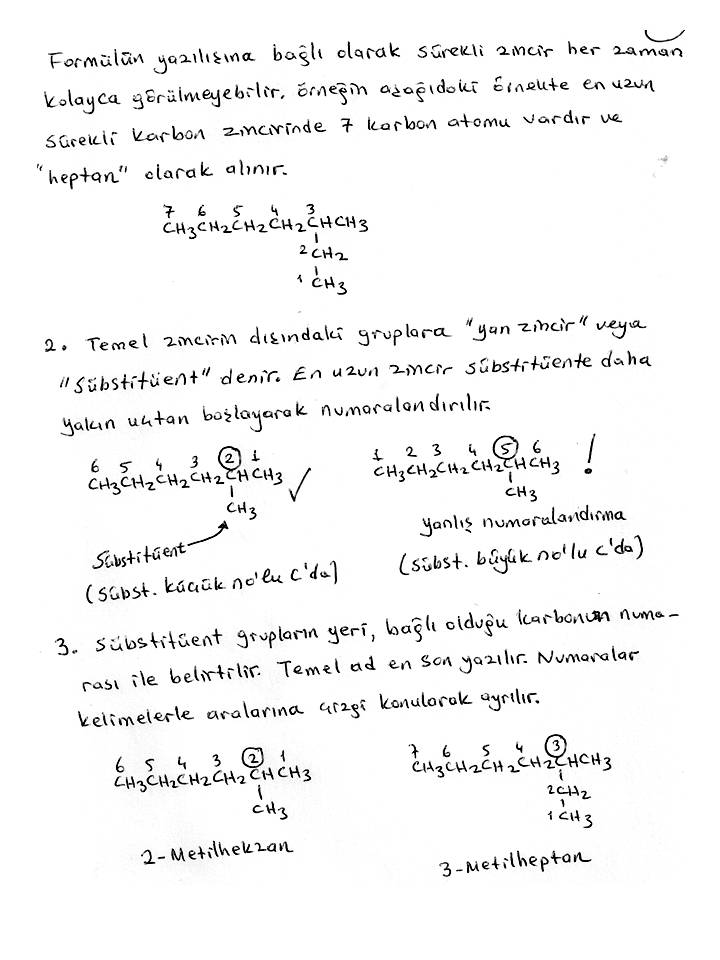 Formülün yazılışına bağlı olarak sürekli zincir her zaman
kolayca görülmeyebilir. örneğin aşağıdaki örnekte en uzun
sürekli karbon zincirinde 7 karbon atomu vardır ve
"heptan" olarak alınır.
7 6 5 4 3
CH3CH2CH2CH2CHCH3
2 CH2
1 CH3
2. Temel zincirin dışındaki gruplara "yan zincir" veya
"sübstitüent" denir. En uzun zincir sübstitüente daha
yakın uçtan başlayarak numaralandırılır.
6 5 4 3 2 1
CH3CH2CH2CH2CHCH3 ✓
CH3
Sübstitüent
(sübst. küçük no'lu C'da)
1 2 3 4 5 6
CH3CH2CH2CH2CHCH3 !
CH3
yanlış numaralandırma
(sübst. büyük no'lu C'da)
3. Sübstitüent grupların yeri, bağlı olduğu karbonun numa-
rası ile belirtilir. Temel ad en son yazılır. Numaralar
kelimelerle aralarına çizgi konularak ayrılır.
6 5 4 3 2 1
CH3CH2CH2CH2CHCH3
CH3
2-Metilhekzan
7 6 5 4 3
CH3CH2CH2CH2CHCH3
2CH2
1 CH3
3-Metilheptan